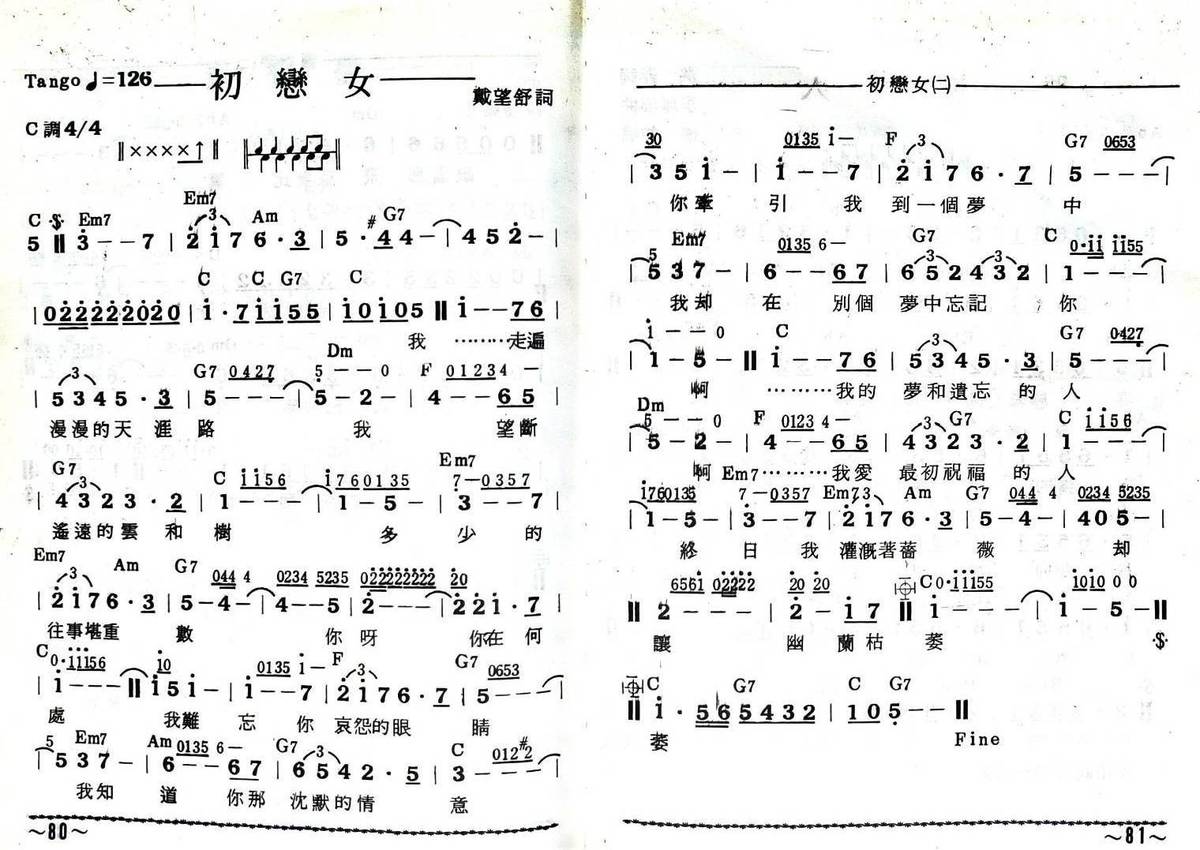 Tango ♩=126 初戀女
戴望舒詞
C調4/4
‖××××↑‖
C 𝄋 Em7 Em7 Am #G7
5 ‖ 3--7 | 2176·3 | 5·44- | 452- |
C C G7 C
| 022222020 | 1·71155 | 10105 ‖ 1--76 |
我………走遍
G7 0427 Dm 5--0 F 01234-
| 5345·3 | 5--- | 5-2- | 4--65 |
漫漫的天涯路 我 望斷
G7 C 1156 1760135 Em7 7-0357
| 4323·2 | 1--- | 1-5- | 3--7 |
遙遠的雲和樹 多少的
Em7 Am G7 044 4 0234 5235 022222222 20
| 2176·3 | 5-4- | 4--5 | 2--- | 221·7 |
往事堪重數 你呀 你在何
C 0·11156 10 0135 1- F G7 0653
| 1--- ‖ 151- | 1--7 | 2176·7 | 5--- |
處 我難忘你哀怨的眼睛
5 Em7 Am 0135 6- G7 C 012#2
| 537- | 6--67 | 6542·5 | 3--- |
我知道你那沈默的情意
~80~
初戀女㈡
30 0135 1- F G7 0653
| 351- | 1--7 | 2176·7 | 5--- |
你牽引我到一個夢中
5 Em7 0135 6- G7 C 0·11 1155
| 537- | 6--67 | 652432 | 1--- |
我却在別個夢中忘記你
1--0 C G7 0427
| 1-5- ‖ 1--76 | 5345·3 | 5--- |
啊………我的夢和遺忘的人
Dm 5--0 F 01234- G7 C 1156
| 5-2- | 4--65 | 4323·2 | 1--- |
啊 Em7………我愛最初祝福的人
1760135 7-0357 Em7 Am G7 044 4 0234 5235
| 1-5- | 3--7 | 2176·3 | 5-4- | 405- |
終日我灌溉著薔薇却
6561 022222 20 20 C0·11155 1010 0 0
‖ 2--- | 2-17 ‖ 1--- | 1-5- ‖
讓幽蘭枯萎 𝄋
C G7 C G7
‖ 1·565432 | 105- ‖
萎 Fine
~81~